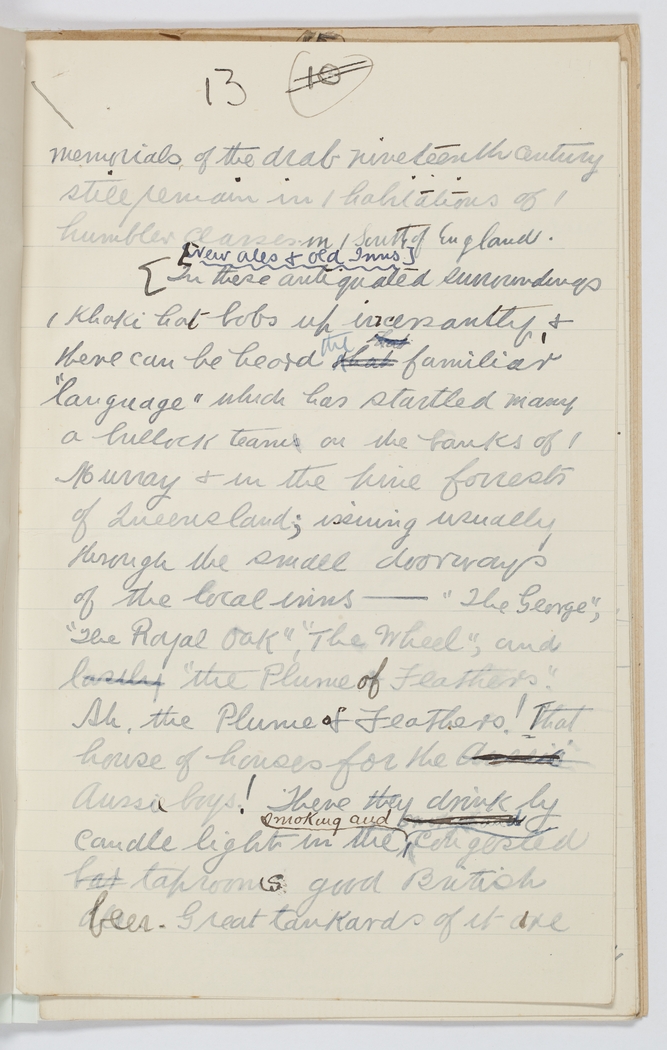 13 10
memorials of the drab nineteenth century
still remain in / habitations of /
humbler classes in / South of England.
[New ales & old Inns]
In these antiquated surroundings
/ Khaki hat bobs up incessantly, &
there can be heard that the familiar
"language" which has startled many
a bullock team on the banks of /
Murray & in the pine forrests
of Queensland; issuing usually
through the small doorways
of the local inns — "The George",
"The Royal Oak", "The Wheel", and
lastly "the Plume of Feathers".
Ah, the Plume of Feathers! That
house of houses for the Aussie
Aussie boys! There they drink by
smoking and
candle light in the, congested
bar taprooms good British
beer. Great tankards of it are